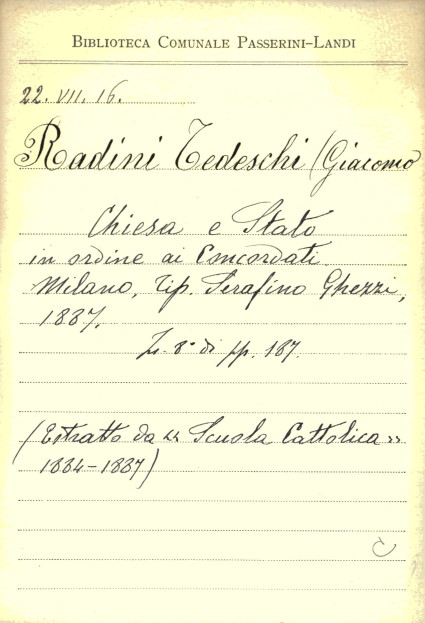 BIBLIOTECA COMUNALE PASSERINI-LANDI
22. VII. 16.
Radini Tedeschi (Giacomo
Chiesa e Stato
in ordine ai Concordati.
Milano, Tip. Serafino Ghezzi,
1887.
In-8° di pp. 187.
(Estratto da « Scuola Cattolica »
1884-1887)